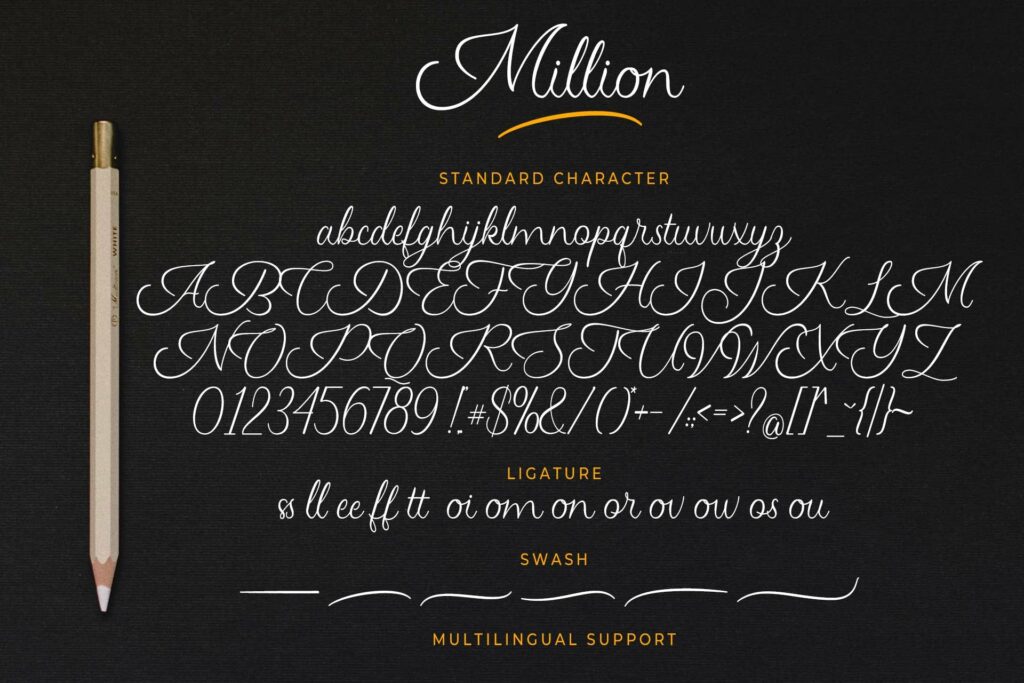 Million
STANDARD CHARACTER
abcdefghijklmnopqrstuvwxyz
ABCDEFGHIJKLM
NOPQRSTUVWXYZ
0123456789
LIGATURE
ss ll ee ff tt oi om on or ov ow os ou
SWASH
MULTILINGUAL SUPPORT
WHITE